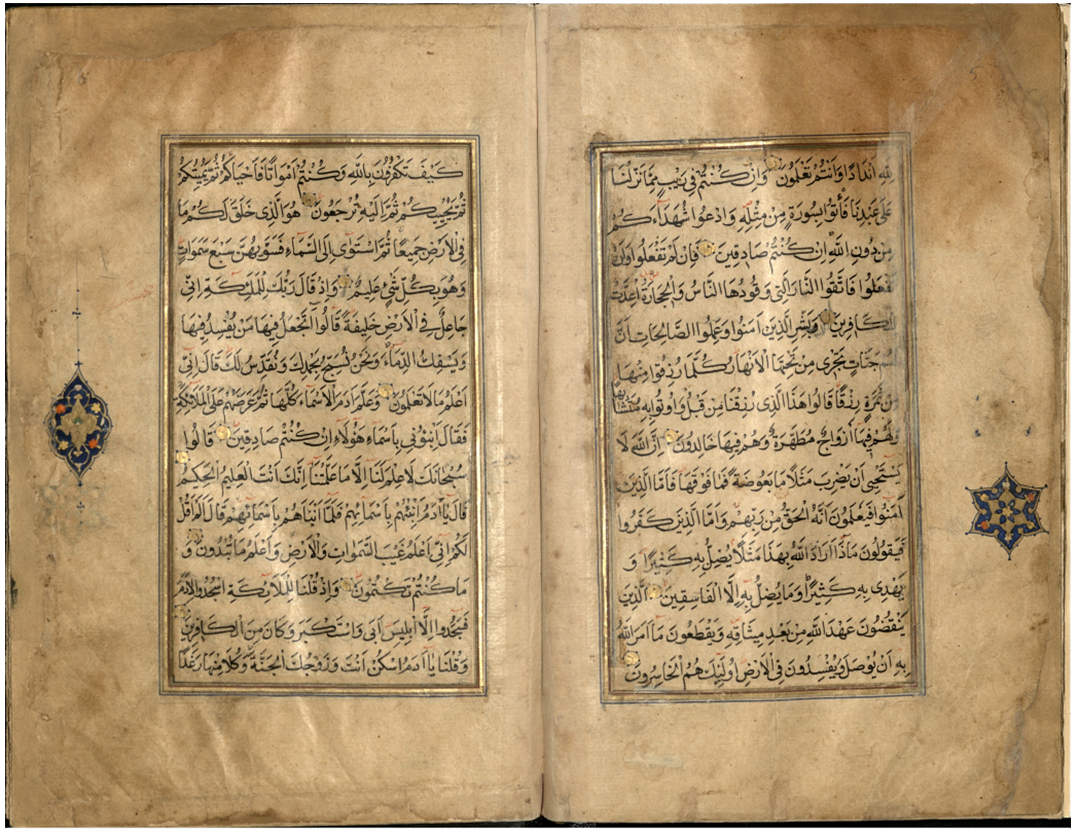 لِلّٰهِ اَنْدَادًا وَاَنْتُمْ تَعْلَمُونَ وَاِنْ كُنْتُمْ فِي رَيْبٍ مِمَّا نَزَّلْنَا
عَلٰى عَبْدِنَا فَأْتُوا بِسُورَةٍ مِنْ مِثْلِهِ وَادْعُوا شُهَدَاءَكُمْ
مِنْ دُونِ اللّٰهِ اِنْ كُنْتُمْ صَادِقِينَ فَاِنْ لَمْ تَفْعَلُوا وَلَنْ
تَفْعَلُوا فَاتَّقُوا النَّارَ الَّتِي وَقُودُهَا النَّاسُ وَالْحِجَارَةُ اُعِدَّتْ
لِلْكَافِرِينَ وَبَشِّرِ الَّذِينَ اٰمَنُوا وَعَمِلُوا الصَّالِحَاتِ اَنَّ
لَهُمْ جَنَّاتٍ تَجْرِي مِنْ تَحْتِهَا الْاَنْهَارُ كُلَّمَا رُزِقُوا مِنْهَا
مِنْ ثَمَرَةٍ رِزْقًا قَالُوا هٰذَا الَّذِي رُزِقْنَا مِنْ قَبْلُ وَاُتُوا بِهِ مُتَشَابِهًا
وَلَهُمْ فِيهَا اَزْوَاجٌ مُطَهَّرَةٌ وَهُمْ فِيهَا خَالِدُونَ اِنَّ اللّٰهَ لَا
يَسْتَحْيِي اَنْ يَضْرِبَ مَثَلًا مَا بَعُوضَةً فَمَا فَوْقَهَا فَاَمَّا الَّذِينَ
اٰمَنُوا فَيَعْلَمُونَ اَنَّهُ الْحَقُّ مِنْ رَبِّهِمْ وَاَمَّا الَّذِينَ كَفَرُوا
فَيَقُولُونَ مَاذَا اَرَادَ اللّٰهُ بِهٰذَا مَثَلًا يُضِلُّ بِهِ كَثِيرًا وَ
يَهْدِي بِهِ كَثِيرًا وَمَا يُضِلُّ بِهِ اِلَّا الْفَاسِقِينَ الَّذِينَ
يَنْقُضُونَ عَهْدَ اللّٰهِ مِنْ بَعْدِ مِيثَاقِهِ وَيَقْطَعُونَ مَا اَمَرَ اللّٰهُ
بِهِ اَنْ يُوصَلَ وَيُفْسِدُونَ فِي الْاَرْضِ اُولٰئِكَ هُمُ الْخَاسِرُونَ
كَيْفَ تَكْفُرُونَ بِاللّٰهِ وَكُنْتُمْ اَمْوَاتًا فَاَحْيَاكُمْ ثُمَّ يُمِيتُكُمْ
ثُمَّ يُحْيِيكُمْ ثُمَّ اِلَيْهِ تُرْجَعُونَ هُوَ الَّذِي خَلَقَ لَكُمْ مَا
فِي الْاَرْضِ جَمِيعًا ثُمَّ اسْتَوٰى اِلَى السَّمَاءِ فَسَوّٰيهُنَّ سَبْعَ سَمٰوَاتٍ
وَهُوَ بِكُلِّ شَيْءٍ عَلِيمٌ وَاِذْ قَالَ رَبُّكَ لِلْمَلٰئِكَةِ اِنِّي
جَاعِلٌ فِي الْاَرْضِ خَلِيفَةً قَالُوا اَتَجْعَلُ فِيهَا مَنْ يُفْسِدُ فِيهَا
وَيَسْفِكُ الدِّمَاءَ وَنَحْنُ نُسَبِّحُ بِحَمْدِكَ وَنُقَدِّسُ لَكَ قَالَ اِنِّي
اَعْلَمُ مَا لَا تَعْلَمُونَ وَعَلَّمَ اٰدَمَ الْاَسْمَاءَ كُلَّهَا ثُمَّ عَرَضَهُمْ عَلَى الْمَلَائِكَةِ
فَقَالَ اَنْبِئُونِي بِاَسْمَاءِ هٰؤُلَاءِ اِنْ كُنْتُمْ صَادِقِينَ قَالُوا
سُبْحَانَكَ لَا عِلْمَ لَنَا اِلَّا مَا عَلَّمْتَنَا اِنَّكَ اَنْتَ الْعَلِيمُ الْحَكِيمُ
قَالَ يَا اٰدَمُ اَنْبِئْهُمْ بِاَسْمَائِهِمْ فَلَمَّا اَنْبَاَهُمْ بِاَسْمَائِهِمْ قَالَ اَلَمْ اَقُلْ
لَكُمْ اِنِّي اَعْلَمُ غَيْبَ السَّمٰوَاتِ وَالْاَرْضِ وَاَعْلَمُ مَا تُبْدُونَ وَ
مَا كُنْتُمْ تَكْتُمُونَ وَاِذْ قُلْنَا لِلْمَلَائِكَةِ اسْجُدُوا لِاٰدَمَ
فَسَجَدُوا اِلَّا اِبْلِيسَ اَبٰى وَاسْتَكْبَرَ وَكَانَ مِنَ الْكَافِرِينَ
وَقُلْنَا يَا اٰدَمُ اسْكُنْ اَنْتَ وَزَوْجُكَ الْجَنَّةَ وَكُلَا مِنْهَا رَغَدًا